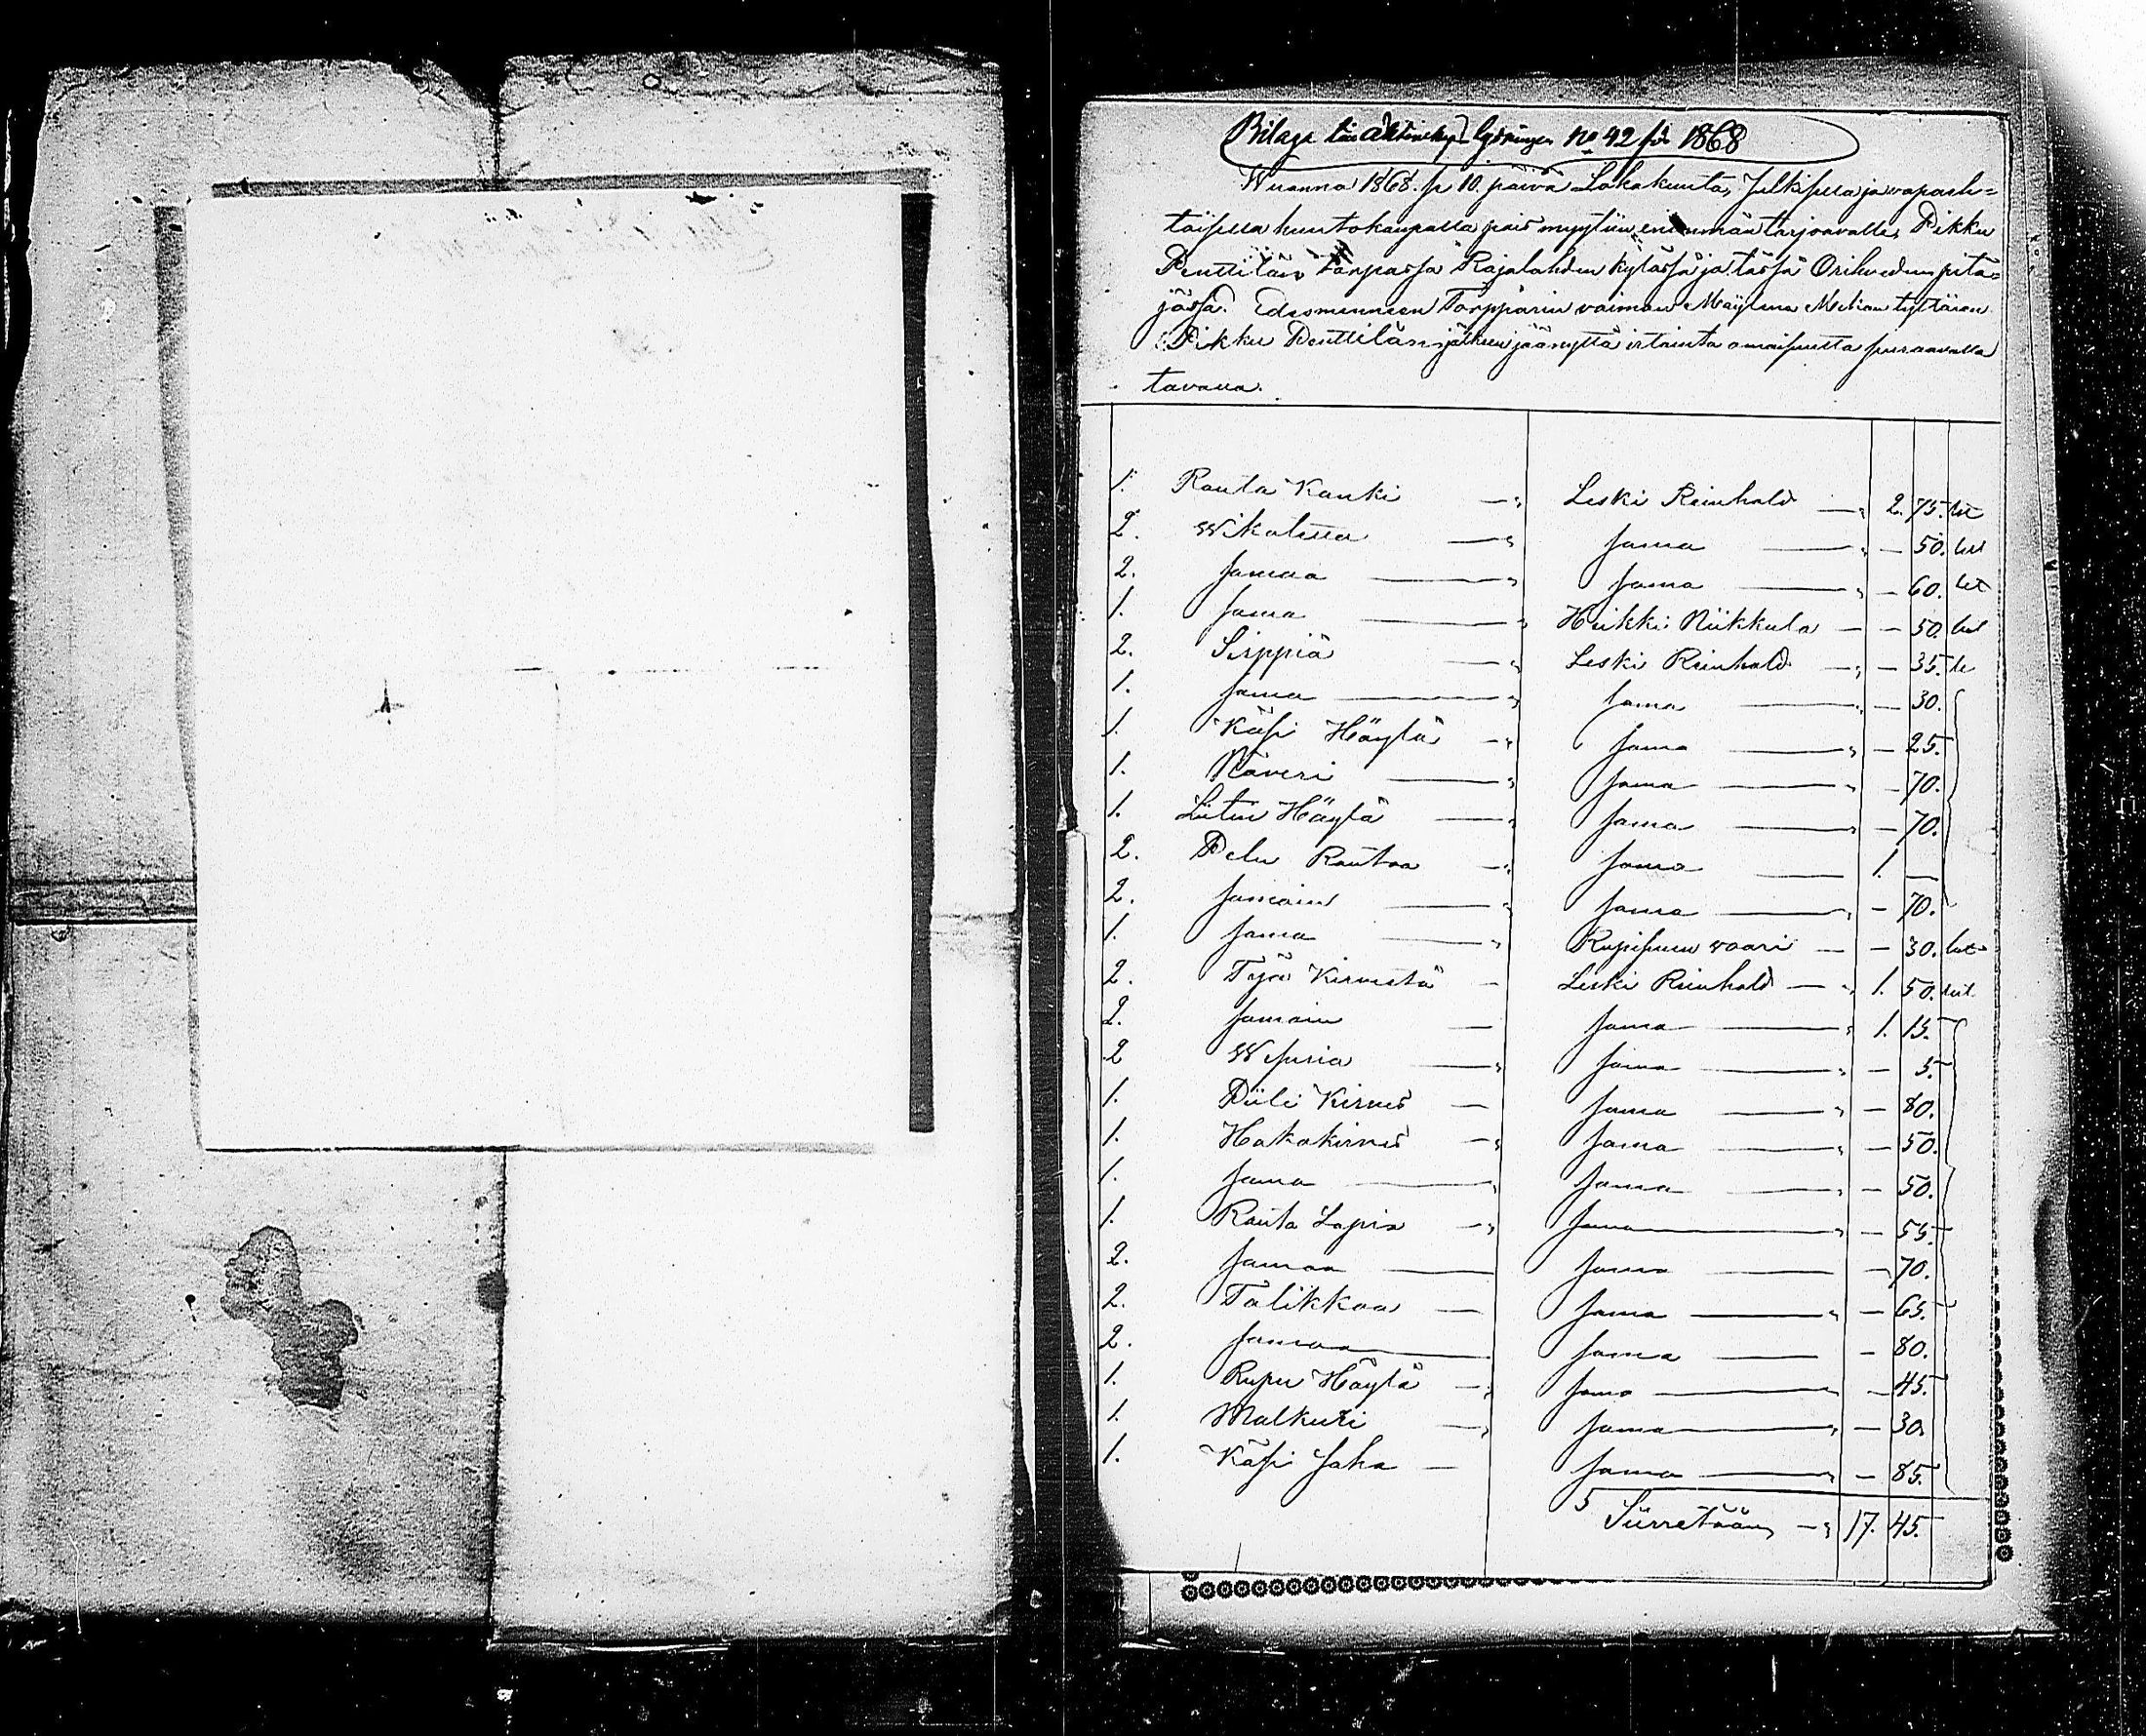 Bilaga till Auktions lysningen No 42 för 1868
Wuonna 1868. p 10. päivä Lokakuuta, Julkisessa ja vapaeh=
toisessa huutokaupassa pois myytiin enimmän tarjoavalle, Pikku
Penttilän Torpassa Rajalahden kylässä ja tässä Orihveden pitä=
jässä. Edesmenneen Torpparin vaimon Maylena Mickon tyttären
Pikku Penttilän jälkeen jäänyttä irtainta omaisuutta seuraavalla
tavalla.
1. Rauta Kanki — Leski Reinhold — 2. 75.
2. Wikatetta — sama — 50.
2. samaa — sama — 60.
1. sama — Heikki Niikkula — 50.
2. Sirppiä — Leski Reinhold — 35.
1. sama — sama — 30.
1. Käsi Höylä — sama — 25.
1. Näveri — sama — 70.
1. Liitin Höylä — sama — 70.
2. Pelu Rautaa — sama — 1. —
2. samain — sama — 70.
1. sama — vaari — 30.
2. Työ Kirvestä — Leski Reinhold — 1. 50.
2. samain — sama — 1. 15.
2 — sama — 5.
1. Piili Kirves — sama — 80.
1. Hakokirves — sama — 50.
1. sama — sama — 50.
1. Rauta Lapia — sama — 55.
2. samaa — sama — 70.
2. Talikkoa — sama — 65.
2. samaa — sama — 80.
1. Höylä — sama — 45.
1. — sama — 30.
1. Käsi saha — sama — 85.
Siirretään — 17. 45.